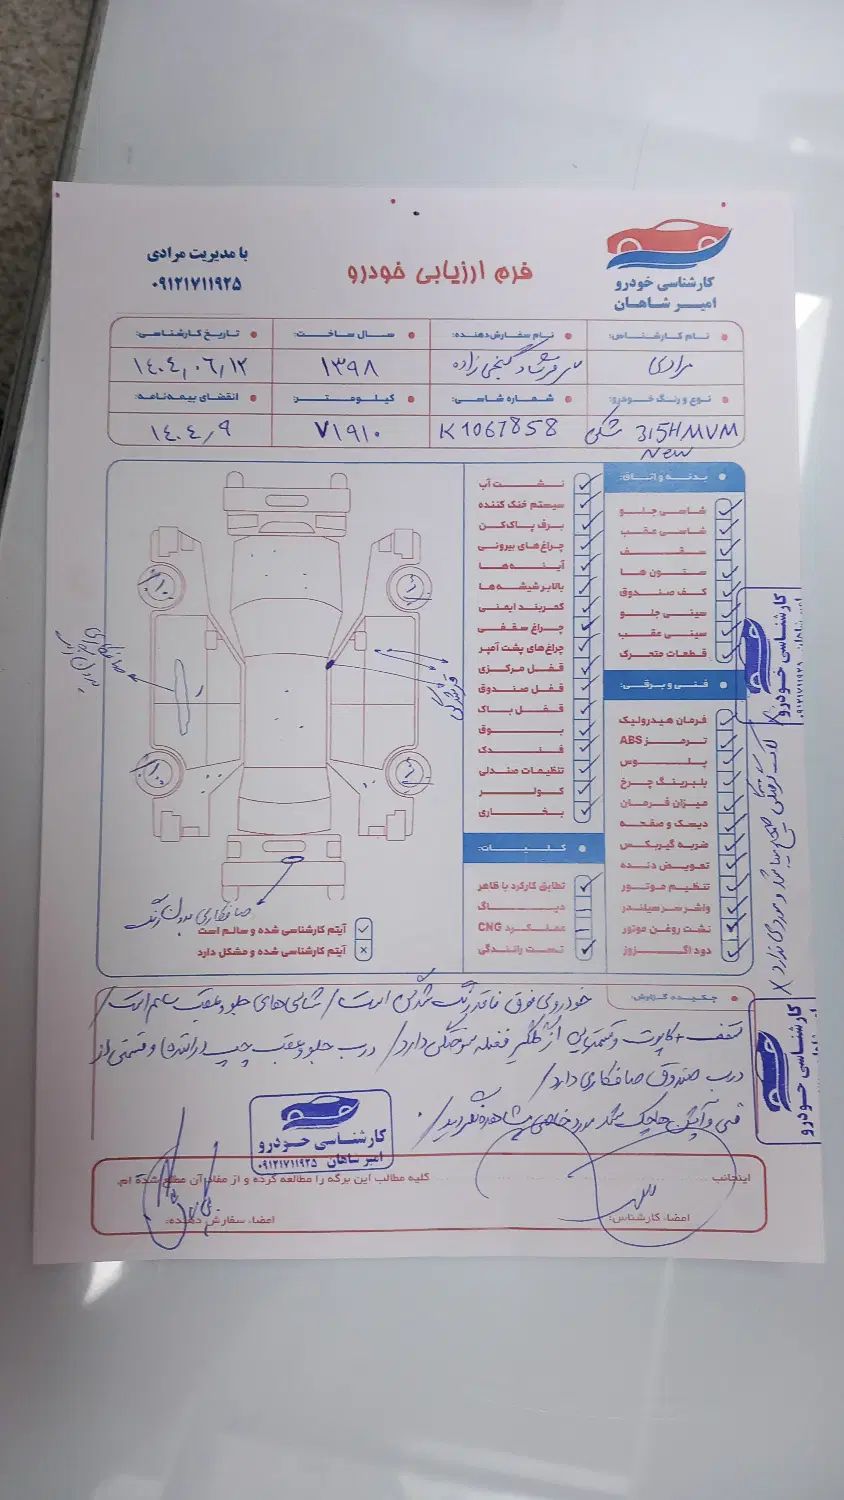 کارشناسی خودرو
امیر شاهان
فرم ارزیابی خودرو
با مدیریت مرادی
۰۹۱۲۱۷۱۱۹۲۵
نام کارشناس:
نام سفارش‌دهنده:
سال ساخت:
تاریخ کارشناسی:
مرادی
۱۳۹۸
۱۴۰۴,۰۶,۱۲
نوع و رنگ خودرو:
شماره شاسی:
کیلومتر:
انقضای بیمه‌نامه:
315H MVM مشکی
New
K1067858
۷۱۹۱۰
۱۴۰۴,۹
بدنه و اتاق:
شاسی جلو
شاسی عقب
سقف
ستون ها
کف صندوق
سینی جلو
سینی عقب
قطعات متحرک
فنی و برقی:
فرمان هیدرولیک
ترمز ABS
پلوس
بلبرینگ چرخ
میزان فرمان
دیسک و صفحه
ضربه گیربکس
تعویض دنده
تنظیم موتور
واشر سر سیلندر
نشت روغن موتور
دود اگزوز
نشت آب
سیستم خنک کننده
برف پاک‌کن
چراغ‌های بیرونی
آینه‌ها
بالابر شیشه‌ها
کمربند ایمنی
چراغ سقفی
چراغ‌های پشت آمپر
قفل مرکزی
قفل صندوق
قفل باک
بوق
فندک
تنظیمات صندلی
کولر
بخاری
کلیات:
تطابق کارکرد با ظاهر
دیاگ
عملکرد CNG
تست رانندگی
صافکاری بدون رنگ
آیتم کارشناسی شده و سالم است
آیتم کارشناسی شده و مشکل دارد
کارشناسی خودرو
چکیده گزارش:
خودروی فوق فاقد رنگ شدگی است / شاسی‌های جلو و عقب سالم است /
سقف + کاپوت و قسمتهایی از گلگیر فضله سوختگی دارد / درب جلو و عقب چپ (راننده) و قسمتی از
درب صندوق صافکاری دارد /
مورد خاصی مشاهده نگردید /
کارشناسی خودرو
کارشناسی خودرو
امیر شاهان ۰۹۱۲۱۷۱۱۹۲۵
اینجانب کلیه مطالب این برگه را مطالعه کرده و از مفاد آن مطلع شده ام.
امضاء کارشناس:
امضاء سفارش دهنده: